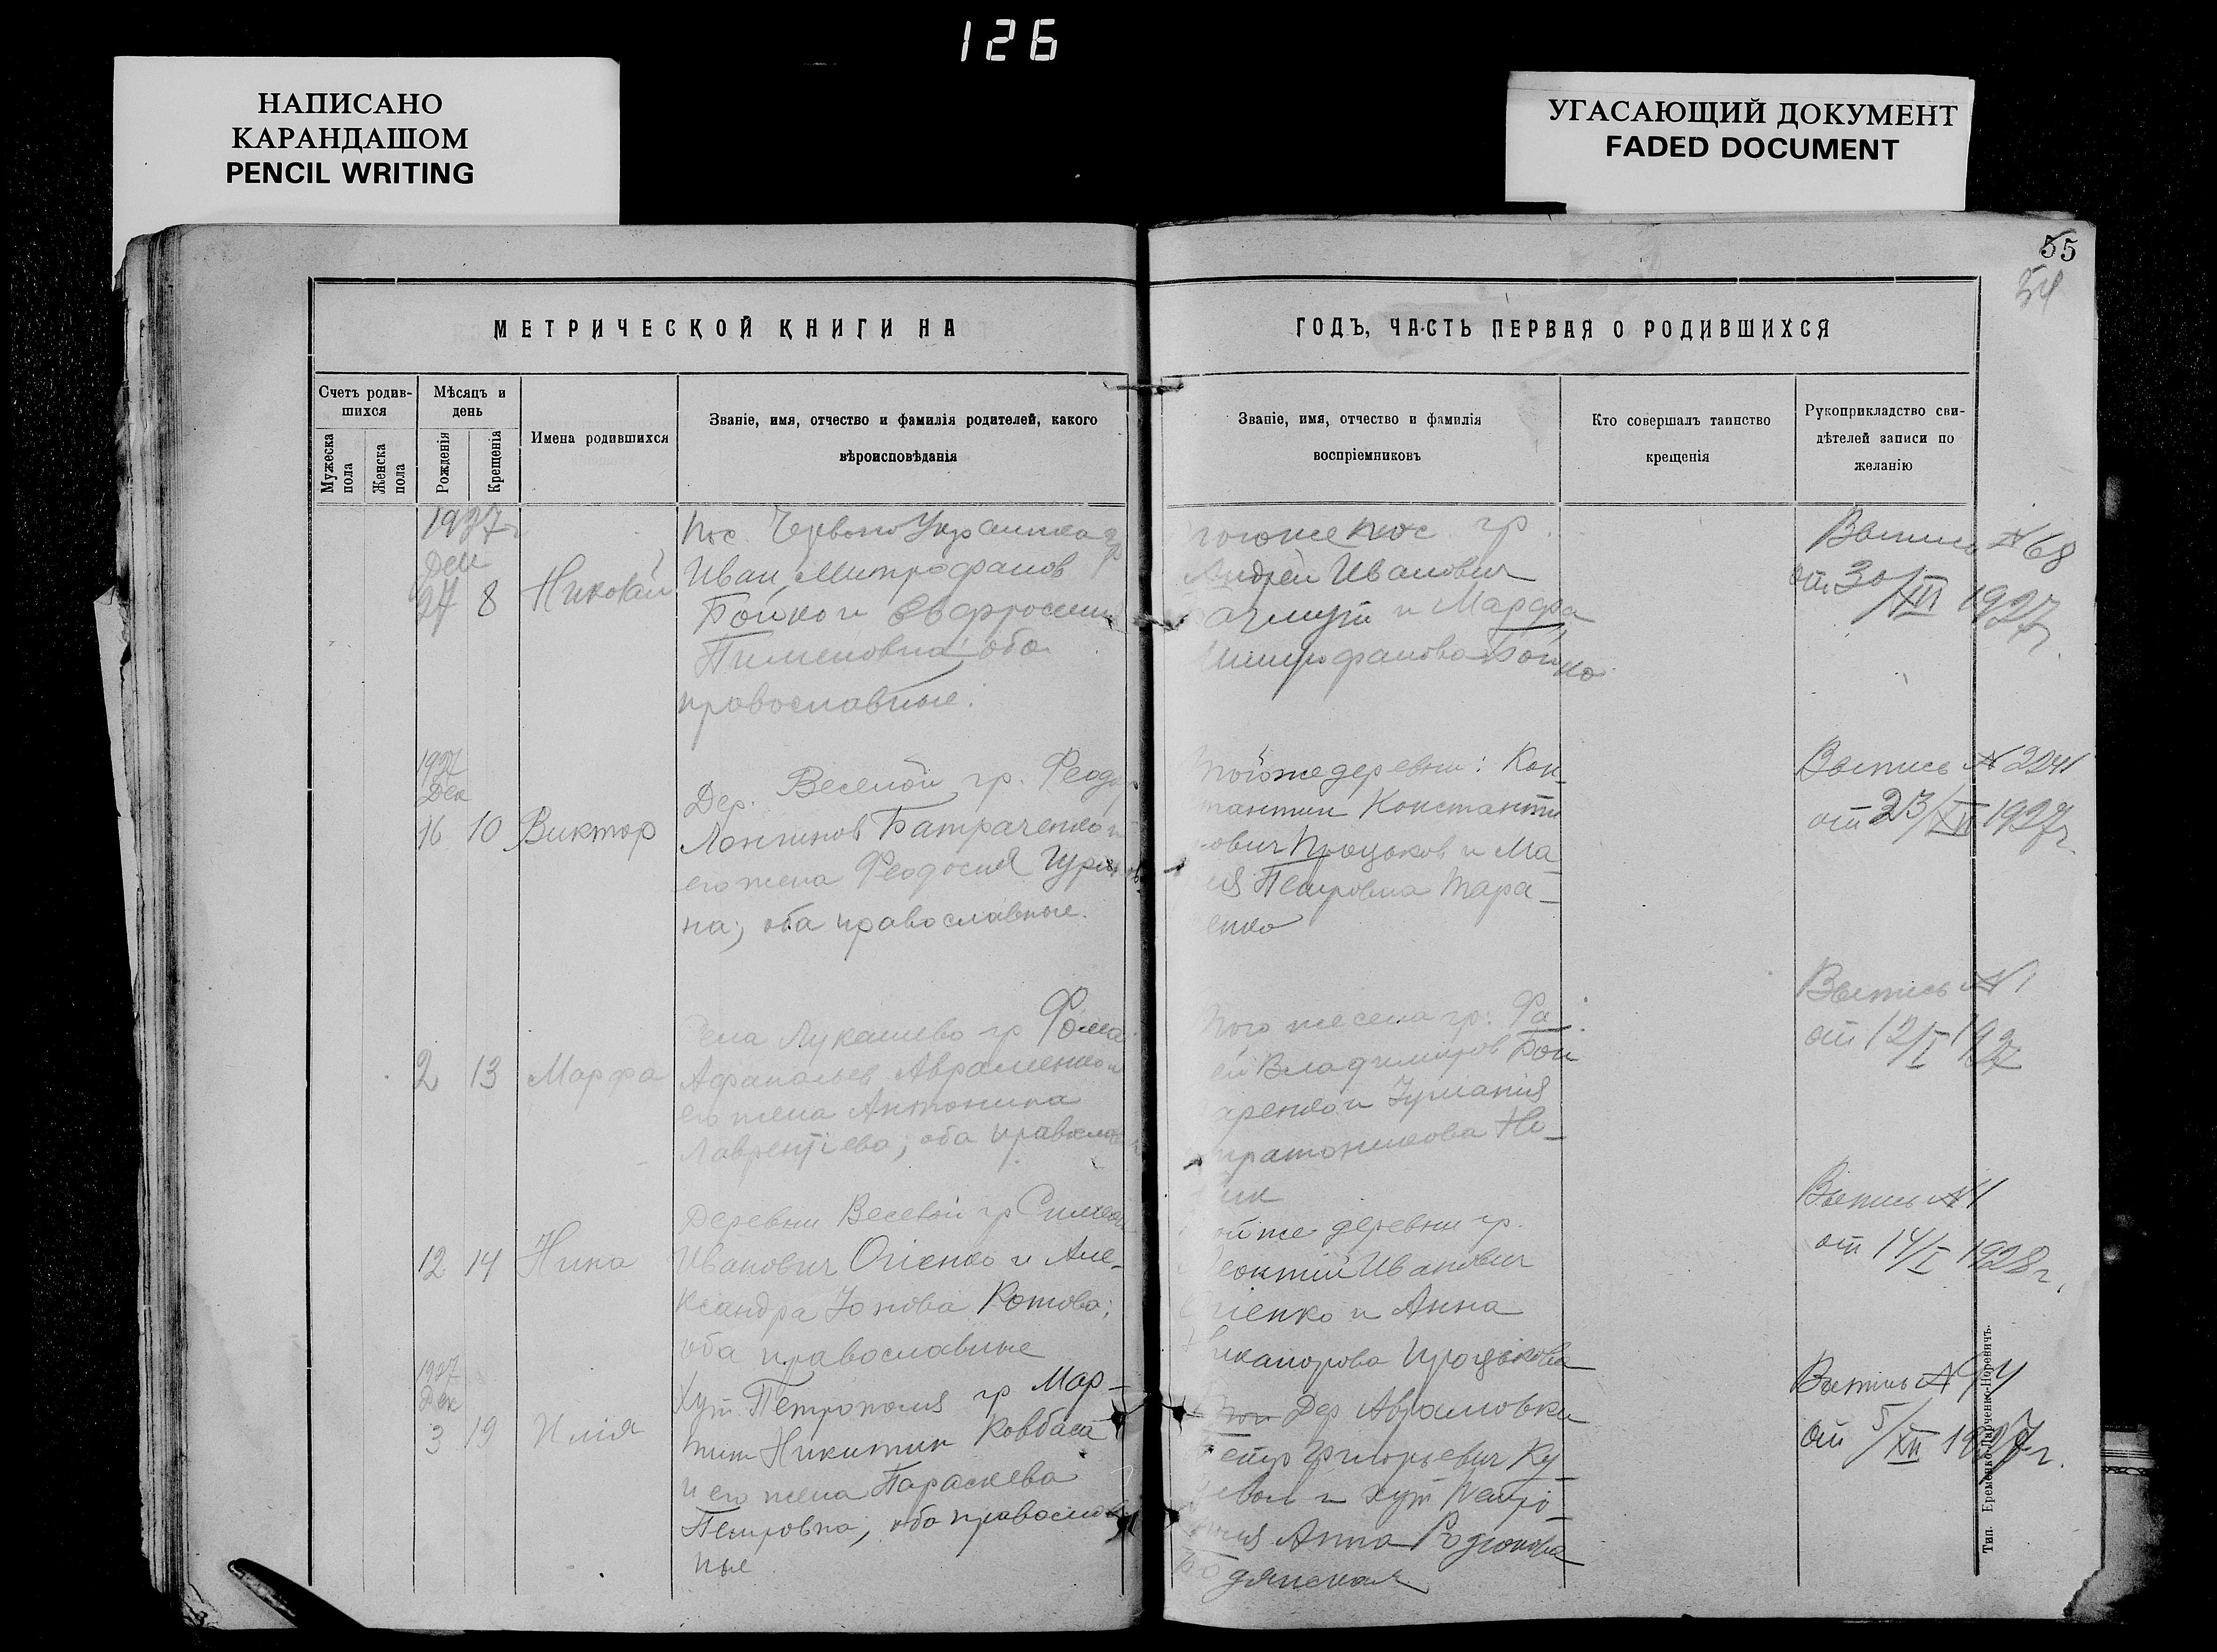 126
НАПИСАНО
КАРАНДАШОМ
PENCIL WRITING
УГАСАЮЩИЙ ДОКУМЕНТ
FADED DOCUMENT
55
54
МЕТРИЧЕСКОЙ КНИГИ НА
ГОДЪ, ЧАСТЬ ПЕРВАЯ О РОДИВШИХСЯ
Счетъ родив-
шихся
Мужеска
пола
Женска
пола
Мѣсяцъ и
день
Рожденія
Крещенія
Имена родившихся
Званіе, имя, отчество и фамилія родителей, какого
вѣроисповѣданія
Званіе, имя, отчество и фамилія
воспріемниковъ
Кто совершалъ таинство
крещенія
Рукоприкладство сви-
дѣтелей записи по
желанію
1927
Дек
27 8 Николай
Пос. Червоно Украинка гр
Иван Митрофанов
Бойко и Евфросиния
Пименовна оба
православные.
тогоже пос. гр.
Андрей Иванович
и Марфа
Митрофанова Бойко
Выпись №68
от 30/XII 1927г.
1927
Дек
16 10 Виктор
Дер. Веселой гр. Феодор
Лонгинов Батраченко и
его жена Феодосия
на; оба православные.
тойже деревни: Кон-
стантин Константи
нович Процьков и Ма
рия Петровна Тара-
енко
Выпись №2241
от 23/XII 1927г.
2 13 Марфа
Села Лукашево гр Фома
Афанасьев Авраменко и
его жена Антонина
Лаврентіева; оба правосл
того же села гр.
Владимиров
Выпись №1
от 12/I 1927
12 14 Нина
Деревни Веселой гр
Иванович Огіенко и Але-
ксандра Іонова Котова;
оба православные
тойже деревни гр.
Иванович
Огіенко и Анна
Никанорова Процькова
Выпись №1
от 14/I 1928г.
1927
Дек
3 19 Илія
Хут. Петрополя гр Мар-
тин Никитин Ковбаса
и его жена Параскева
Петровна, оба православ
ные
Дер Аврамовки
Петр Григорьевич Ку-
и хут Петро-
поля Анна Родіонова
Бодянская
Выпись №
от 5/XII 1927г.
Тип. Еременко-Ларченко-Норевичъ.